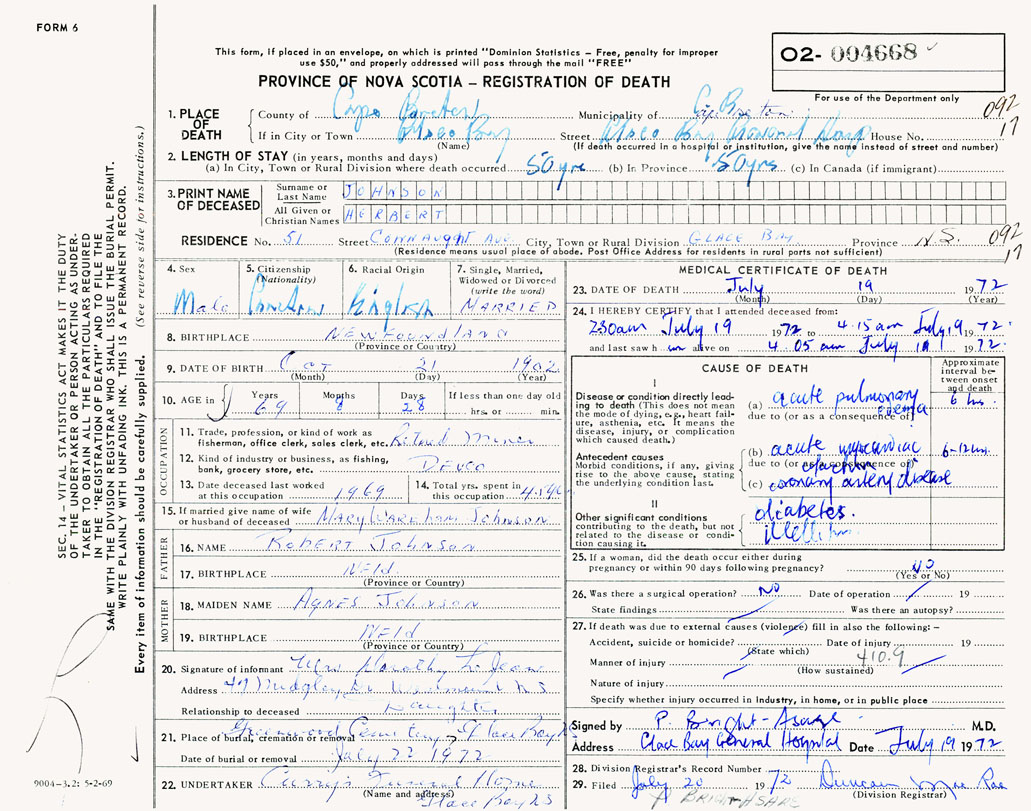 FORM 6
This form, if placed in an envelope, on which is printed "Dominion Statistics – Free, penalty for improper
use $50," and properly addressed will pass through the mail "FREE"
O2- 004668
PROVINCE OF NOVA SCOTIA – REGISTRATION OF DEATH
For use of the Department only
092
17
1. PLACE OF DEATH
County of Cape Breton Municipality of Cape Breton
If in City or Town Glace Bay Street Glace Bay General Hosp House No.
(Name) (If death occurred in a hospital or institution, give the name instead of street and number)
2. LENGTH OF STAY (in years, months and days)
(a) In City, Town or Rural Division where death occurred 50 yrs (b) In Province 50 yrs (c) In Canada (if immigrant)
3. PRINT NAME OF DECEASED
Surname or Last Name JOHNSON
All Given or Christian Names HERBERT
RESIDENCE No. 51 Street CONNAUGHT AVE City, Town or Rural Division GLACE BAY Province N.S. 092
17
(Residence means usual place of abode. Post Office Address for residents in rural parts not sufficient)
4. Sex
Male
5. Citizenship
(Nationality)
Canadian
6. Racial Origin
English
7. Single, Married,
Widowed or Divorced
(write the word)
MARRIED
8. BIRTHPLACE NEWFOUNDLAND
(Province or Country)
9. DATE OF BIRTH Oct 21 1902
(Month) (Day) (Year)
10. AGE in
Years 69 Months 8 Days 28
If less than one day old
hrs. or min.
OCCUPATION
11. Trade, profession, or kind of work as
fisherman, office clerk, sales clerk, etc. Retired Miner
12. Kind of industry or business, as fishing,
bank, grocery store, etc. DEVCO
13. Date deceased last worked
at this occupation 1969
14. Total yrs. spent in
this occupation
15. If married give name of wife
or husband of deceased MARY WAREHAM JOHNSON
FATHER
16. NAME ROBERT JOHNSON
17. BIRTHPLACE NFld
(Province or Country)
MOTHER
18. MAIDEN NAME AGNES JOHNSON
19. BIRTHPLACE NFld
(Province or Country)
20. Signature of informant Mrs
Address 49 Dr. NS
Relationship to deceased Daughter
21. Place of burial, cremation or removal Greenwood Cemetery Glace Bay NS
Date of burial or removal July 22 1972
22. UNDERTAKER Curry's Funeral Home
(Name and address) Glace Bay NS
MEDICAL CERTIFICATE OF DEATH
23. DATE OF DEATH July 19 1972
(Month) (Day) (Year)
24. I HEREBY CERTIFY that I attended deceased from:
230am July 19 1972 to 4.15am July 19 1972
and last saw h im alive on 4.05 am July 19 1972
CAUSE OF DEATH
Approximate
interval be-
tween onset
and death
I
Disease or condition directly lead-
ing to death (This does not mean
the mode of dying, e.g., heart fail-
ure, asthenia, etc. It means the
disease, injury, or complication
which caused death.)
(a) acute pulmonary edema 6 hrs.
due to (or as a consequence of)
Antecedent causes
Morbid conditions, if any, giving
rise to the above cause, stating
the underlying condition last.
(b) acute myocardiac infarction 6-12 hrs.
due to (or as a consequence of)
(c) coronary artery disease
II
Other significant conditions
contributing to the death, but not
related to the disease or condi-
tion causing it.
diabetes
mellitus
25. If a woman, did the death occur either during
pregnancy or within 90 days following pregnancy? NO
(Yes or No)
26. Was there a surgical operation? No Date of operation 19
State findings Was there an autopsy?
27. If death was due to external causes (violence) fill in also the following: –
Accident, suicide or homicide? Date of injury 19
(State which)
410.9
Manner of injury
(How sustained)
Nature of injury
Specify whether injury occurred in Industry, in home, or in public place
Signed by P. Bright-Asare M.D.
Address Glace Bay General Hospital Date July 19 1972
28. Division Registrar's Record Number
29. Filed July 20 1972 Duncan Mac Rae
(Division Registrar)
P BRIGHT-ASARE
SEC. 14 – VITAL STATISTICS ACT MAKES IT THE DUTY
OF THE UNDERTAKER OR PERSON ACTING AS UNDER-
TAKER TO OBTAIN ALL THE PARTICULARS REQUIRED
IN THE "REGISTRATION OF DEATH" AND TO FILE THE
SAME WITH THE DIVISION REGISTRAR WHO SHALL ISSUE THE BURIAL PERMIT.
WRITE PLAINLY WITH UNFADING INK. THIS IS A PERMANENT RECORD.
Every item of information should be carefully supplied. (See reverse side for instructions.)
9004-3.2: 5-2-69